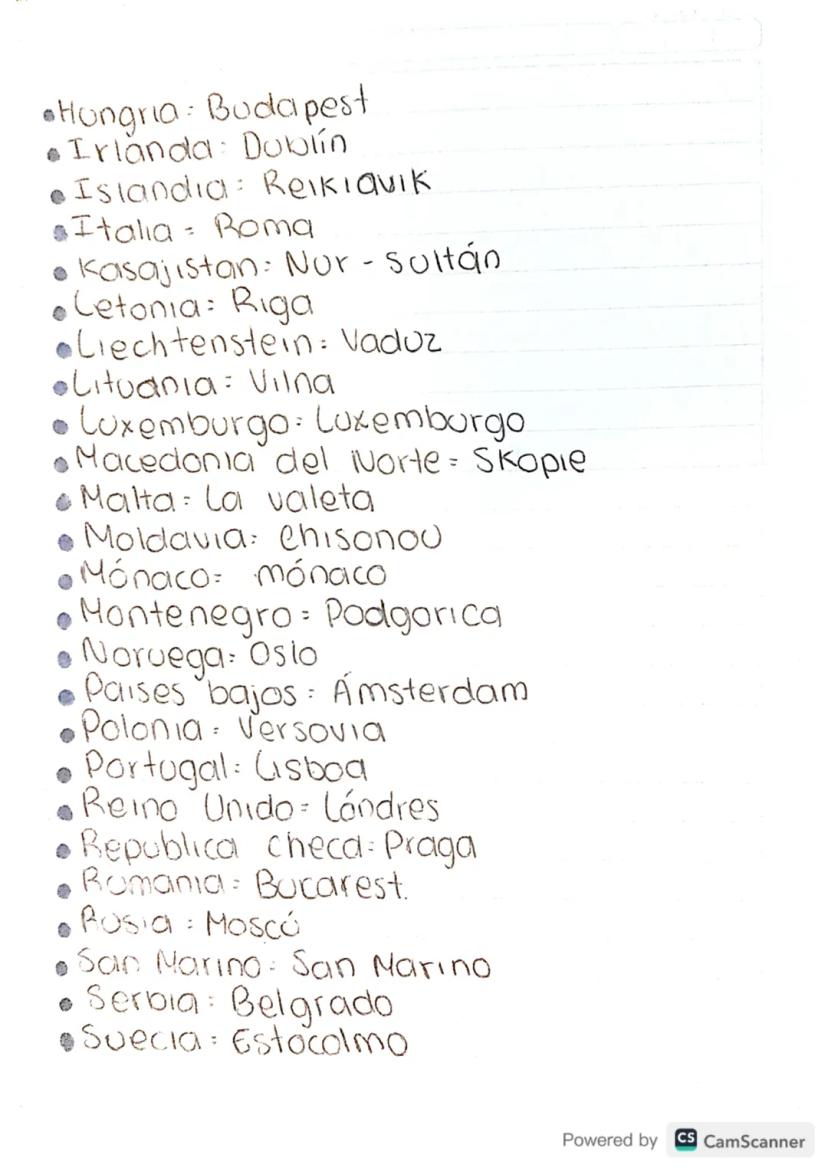 •Hungria: Budapest
• Irlanda: Dublín
• Islandia: Reikiavik
•Italia: Roma
• Kasajistan: Nur - Sultán
• Letonia: Riga
•Liechtenstein: Vaduz
•Lituania: Vilna
• Luxemburgo: Luxemburgo
•Macedonia del Norte: Skopie
• Malta: La valeta
• Moldavia: Chisonou
• Mónaco: mónaco
• Montenegro: Podgorica
• Noruega: Oslo
• Paises bajos: Ámsterdam
•Polonia: Versovia
• Portugal: Lisboa
• Reino Unido: Lóndres
• Republica checa: Praga
• Rumania: Bucarest.
• Rusia: Moscú
• San Marino: San Marino
• Serbia: Belgrado
•Suecia: Estocolmo
Powered by CS CamScanner